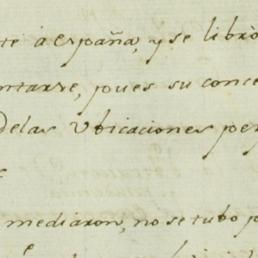 te à españa, y se librò
ntarse, pues su conce
Delas Vbicaciones pe
mediaron, no se tubo p